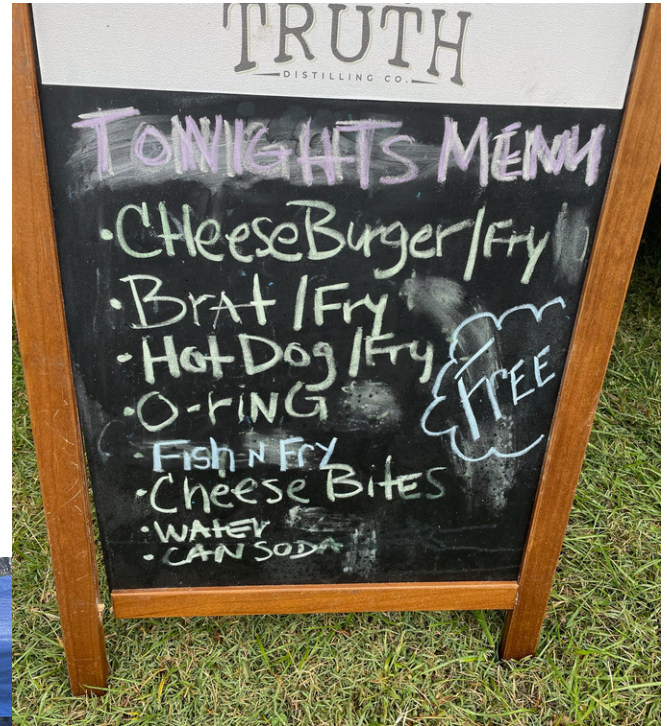 TRUTH
DISTILLING CO.
TONIGHTS MENU
·CHeeseBurger/Fry
·BrAt/Fry
·HotDog/Fry
·O-riNG
FrEE
·Fish N Fry
·Cheese Bites
·WATEr
·CAN SODA